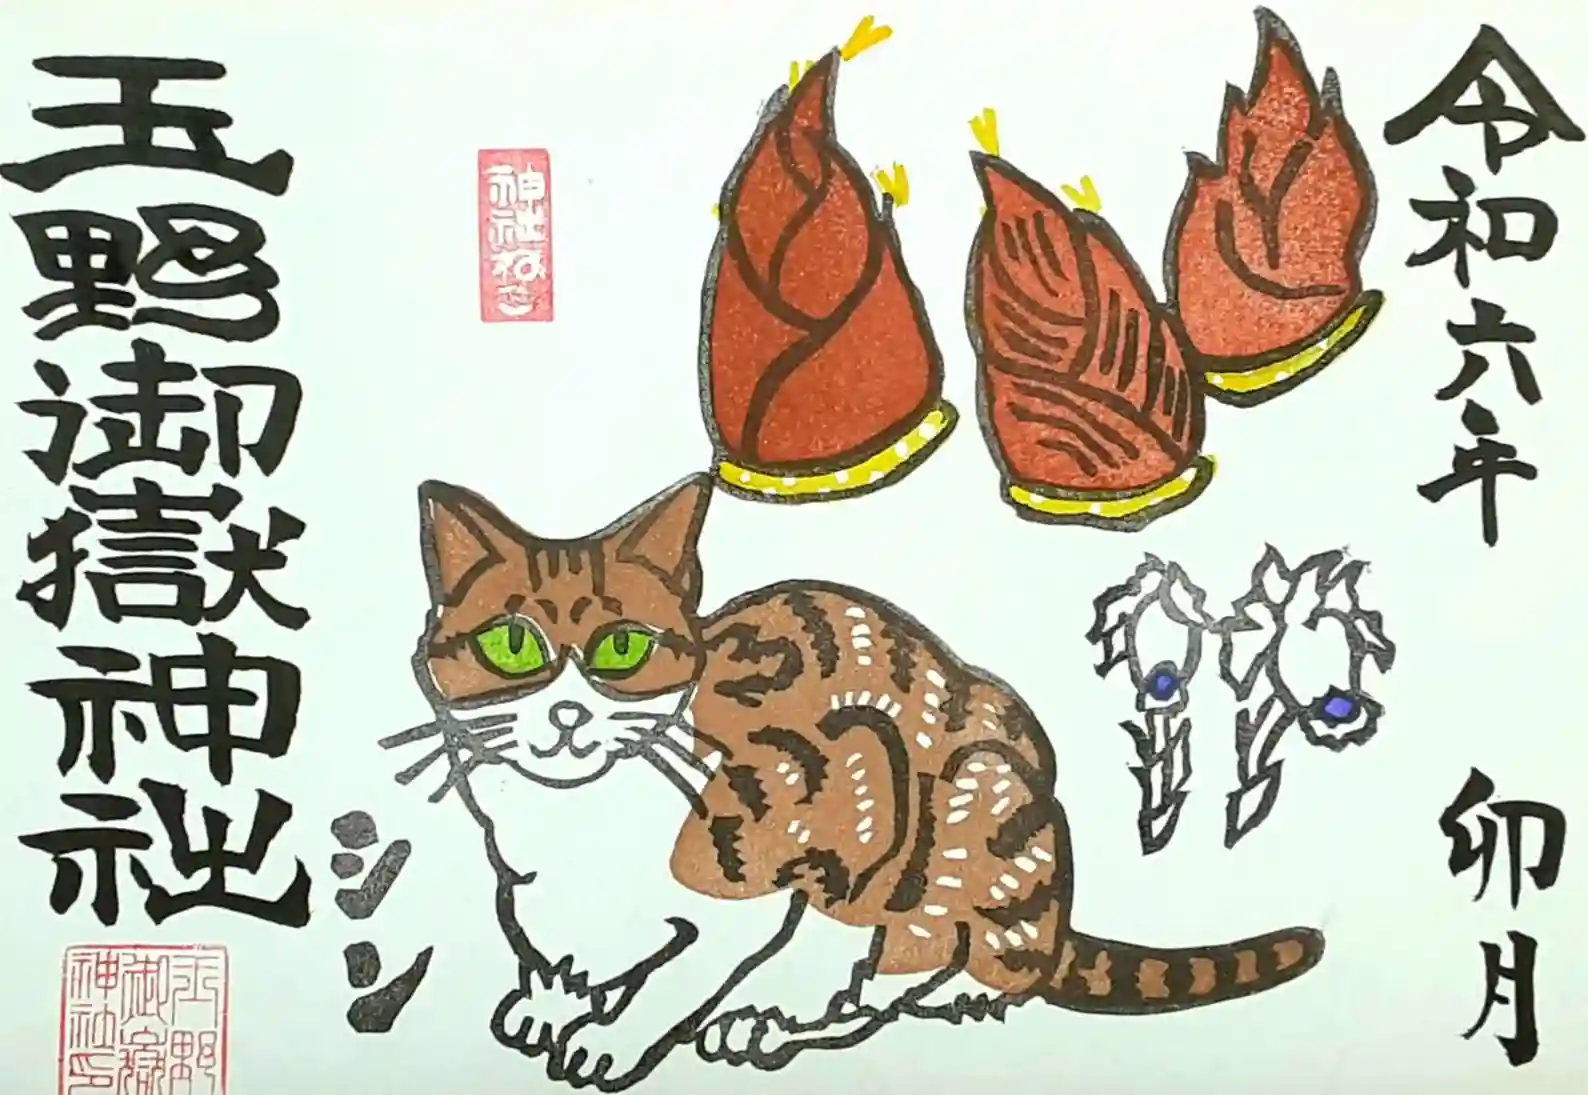 令和六年
卯月
神社ねこ
シン
玉野御嶽神社
玉野
御嶽
神社印